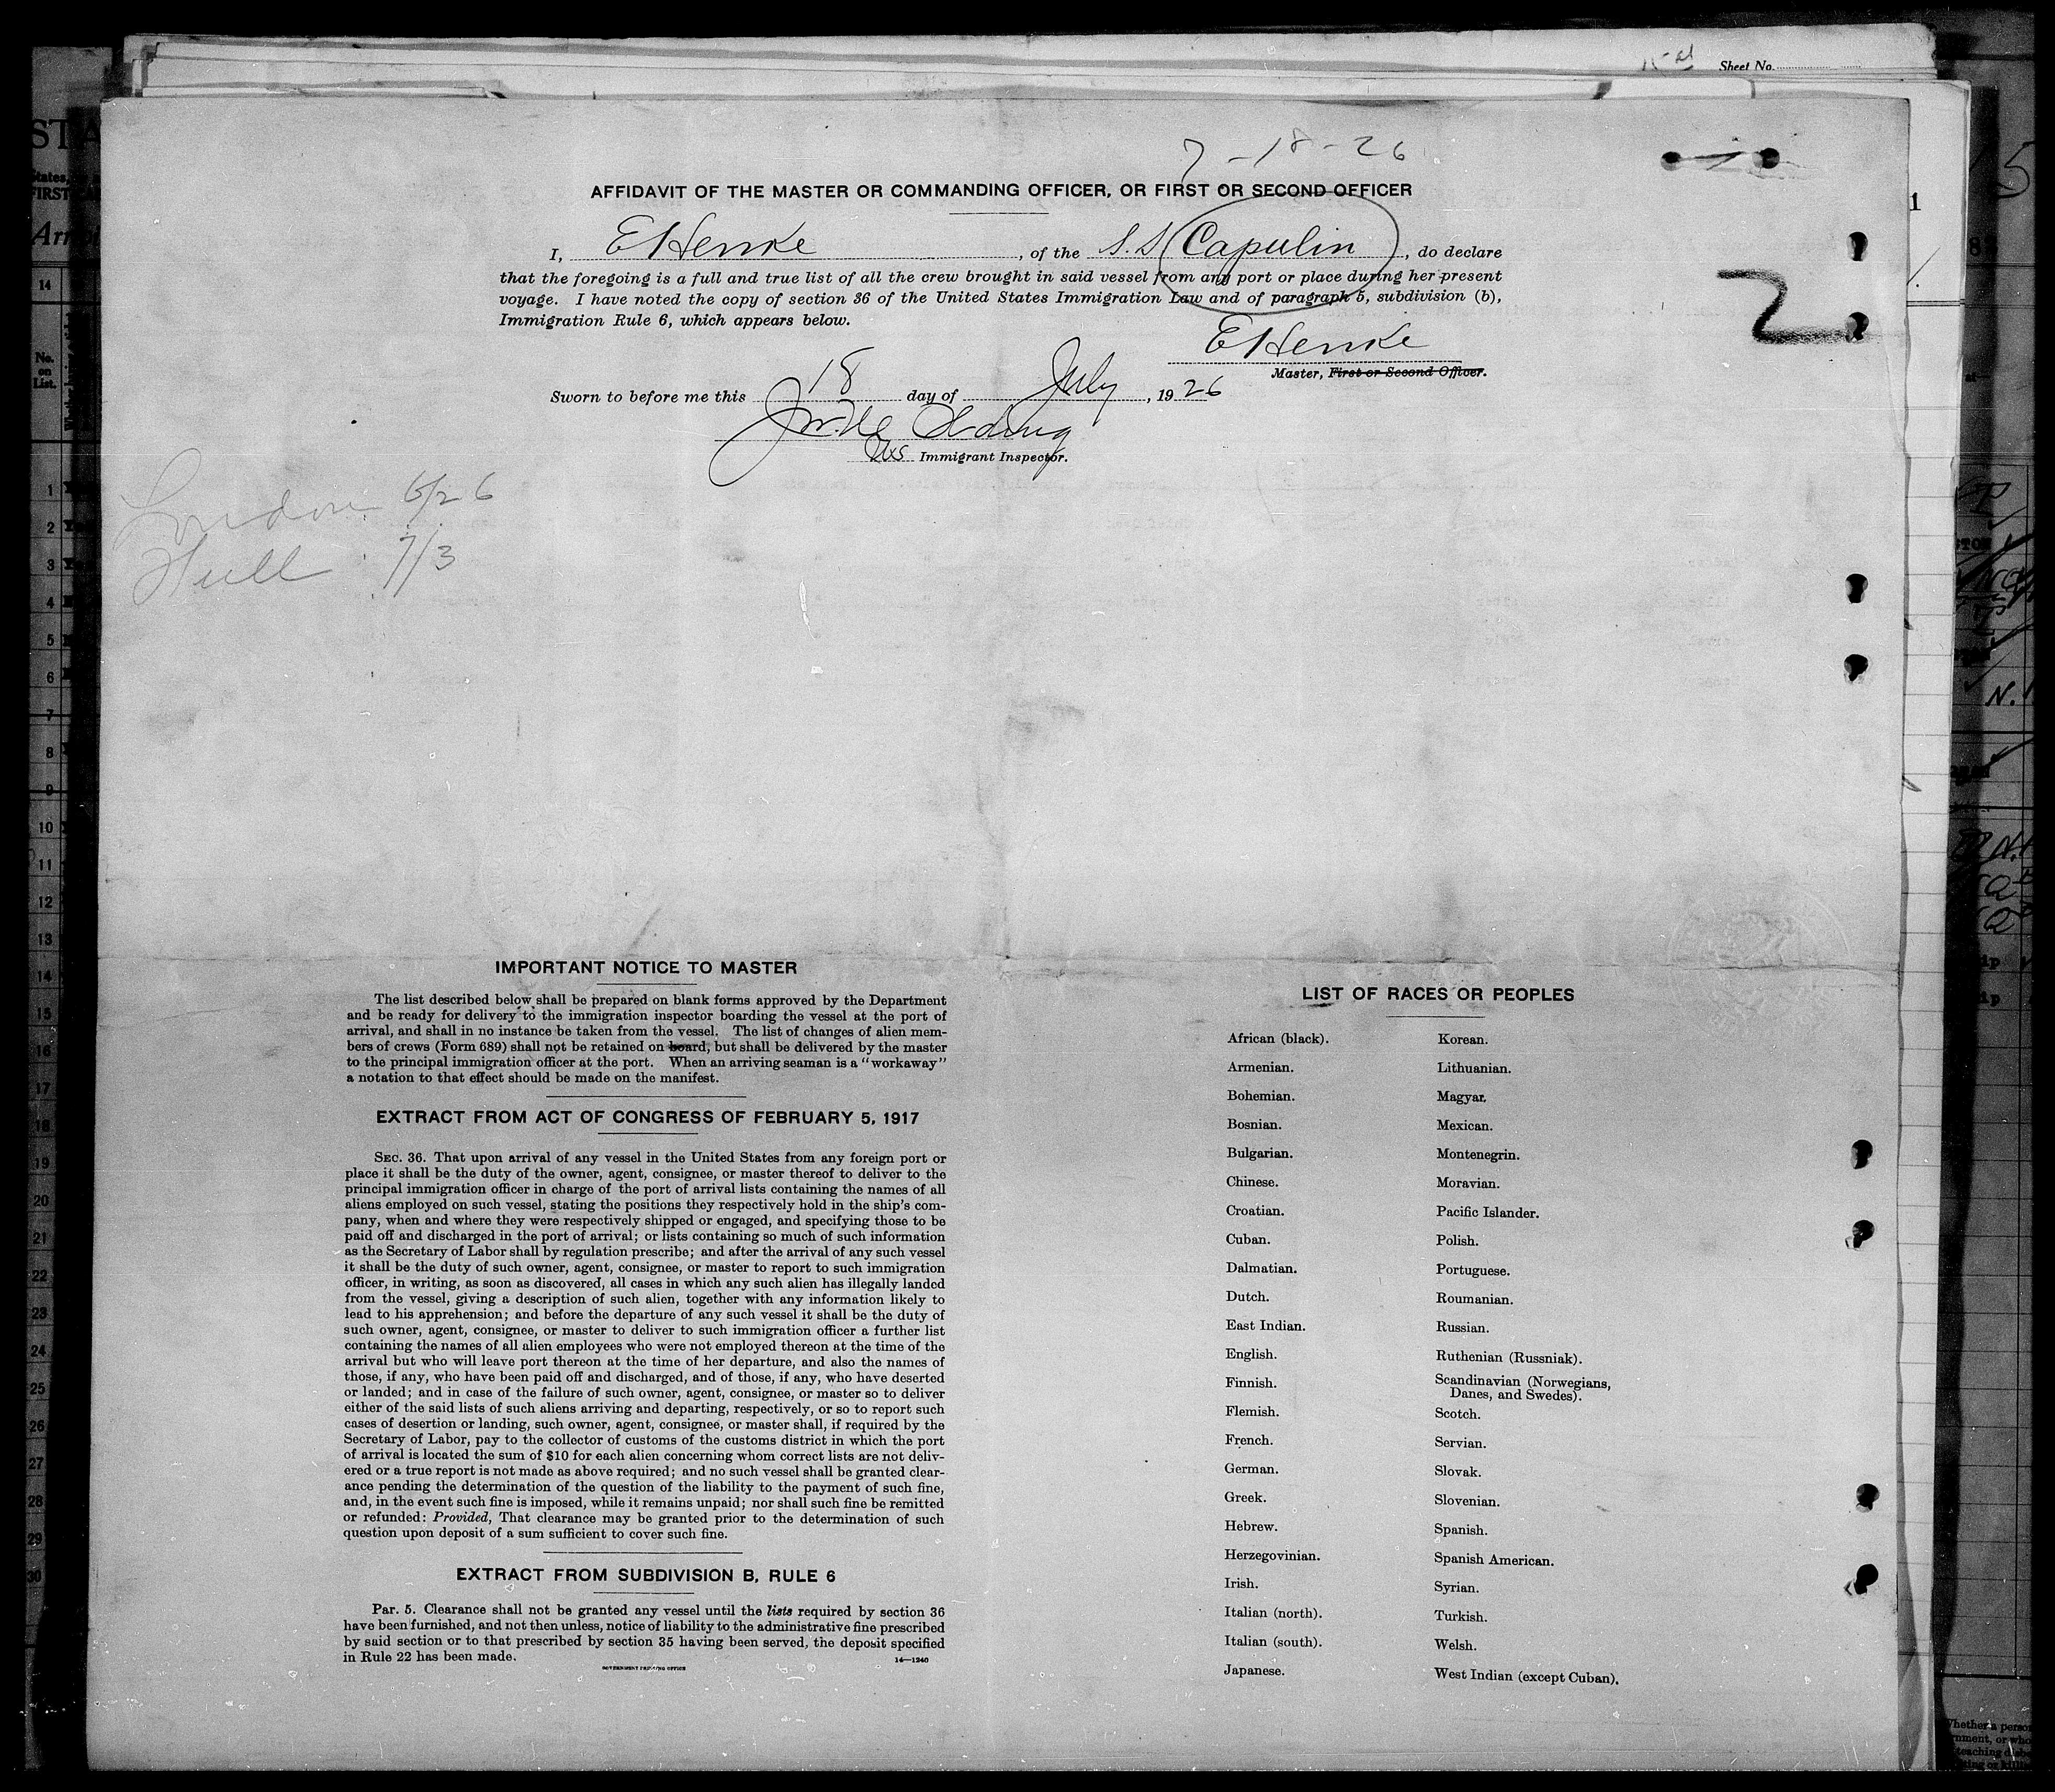 Sheet No.
7-18-26
AFFIDAVIT OF THE MASTER OR COMMANDING OFFICER, OR FIRST OR SECOND OFFICER
I, E Henke, of the S.S Capulin, do declare
that the foregoing is a full and true list of all the crew brought in said vessel from any port or place during her present
voyage. I have noted the copy of section 36 of the United States Immigration Law and of paragraph 5, subdivision (b),
Immigration Rule 6, which appears below.
E Henke
Master, First or Second Officer.
Sworn to before me this 18 day of July, 1926
Immigrant Inspector.
2
London 6/26
Hull 7/3
IMPORTANT NOTICE TO MASTER
The list described below shall be prepared on blank forms approved by the Department
and be ready for delivery to the immigration inspector boarding the vessel at the port of
arrival, and shall in no instance be taken from the vessel. The list of changes of alien mem-
bers of crews (Form 689) shall not be retained on board, but shall be delivered by the master
to the principal immigration officer at the port. When an arriving seaman is a "workaway"
a notation to that effect should be made on the manifest.
EXTRACT FROM ACT OF CONGRESS OF FEBRUARY 5, 1917
SEC. 36. That upon arrival of any vessel in the United States from any foreign port or
place it shall be the duty of the owner, agent, consignee, or master thereof to deliver to the
principal immigration officer in charge of the port of arrival lists containing the names of all
aliens employed on such vessel, stating the positions they respectively hold in the ship's com-
pany, when and where they were respectively shipped or engaged, and specifying those to be
paid off and discharged in the port of arrival; or lists containing so much of such information
as the Secretary of Labor shall by regulation prescribe; and after the arrival of any such vessel
it shall be the duty of such owner, agent, consignee, or master to report to such immigration
officer, in writing, as soon as discovered, all cases in which any such alien has illegally landed
from the vessel, giving a description of such alien, together with any information likely to
lead to his apprehension; and before the departure of any such vessel it shall be the duty of
such owner, agent, consignee, or master to deliver to such immigration officer a further list
containing the names of all alien employees who were not employed thereon at the time of the
arrival but who will leave port thereon at the time of her departure, and also the names of
those, if any, who have been paid off and discharged, and of those, if any, who have deserted
or landed; and in case of the failure of such owner, agent, consignee, or master so to deliver
either of the said lists of such aliens arriving and departing, respectively, or so to report such
cases of desertion or landing, such owner, agent, consignee, or master shall, if required by the
Secretary of Labor, pay to the collector of customs of the customs district in which the port
of arrival is located the sum of $10 for each alien concerning whom correct lists are not deliv-
ered or a true report is not made as above required; and no such vessel shall be granted clear-
ance pending the determination of the question of the liability to the payment of such fine,
and, in the event such fine is imposed, while it remains unpaid; nor shall such fine be remitted
or refunded: Provided, That clearance may be granted prior to the determination of such
question upon deposit of a sum sufficient to cover such fine.
EXTRACT FROM SUBDIVISION B, RULE 6
Par. 5. Clearance shall not be granted any vessel until the lists required by section 36
have been furnished, and not then unless, notice of liability to the administrative fine prescribed
by said section or to that prescribed by section 35 having been served, the deposit specified
in Rule 22 has been made.
GOVERNMENT PRINTING OFFICE
14—1240
LIST OF RACES OR PEOPLES
African (black).
Armenian.
Bohemian.
Bosnian.
Bulgarian.
Chinese.
Croatian.
Cuban.
Dalmatian.
Dutch.
East Indian.
English.
Finnish.
Flemish.
French.
German.
Greek.
Hebrew.
Herzegovinian.
Irish.
Italian (north).
Italian (south).
Japanese.
Korean.
Lithuanian.
Magyar.
Mexican.
Montenegrin.
Moravian.
Pacific Islander.
Polish.
Portuguese.
Roumanian.
Russian.
Ruthenian (Russniak).
Scandinavian (Norwegians,
Danes, and Swedes).
Scotch.
Servian.
Slovak.
Slovenian.
Spanish.
Spanish American.
Syrian.
Turkish.
Welsh.
West Indian (except Cuban).